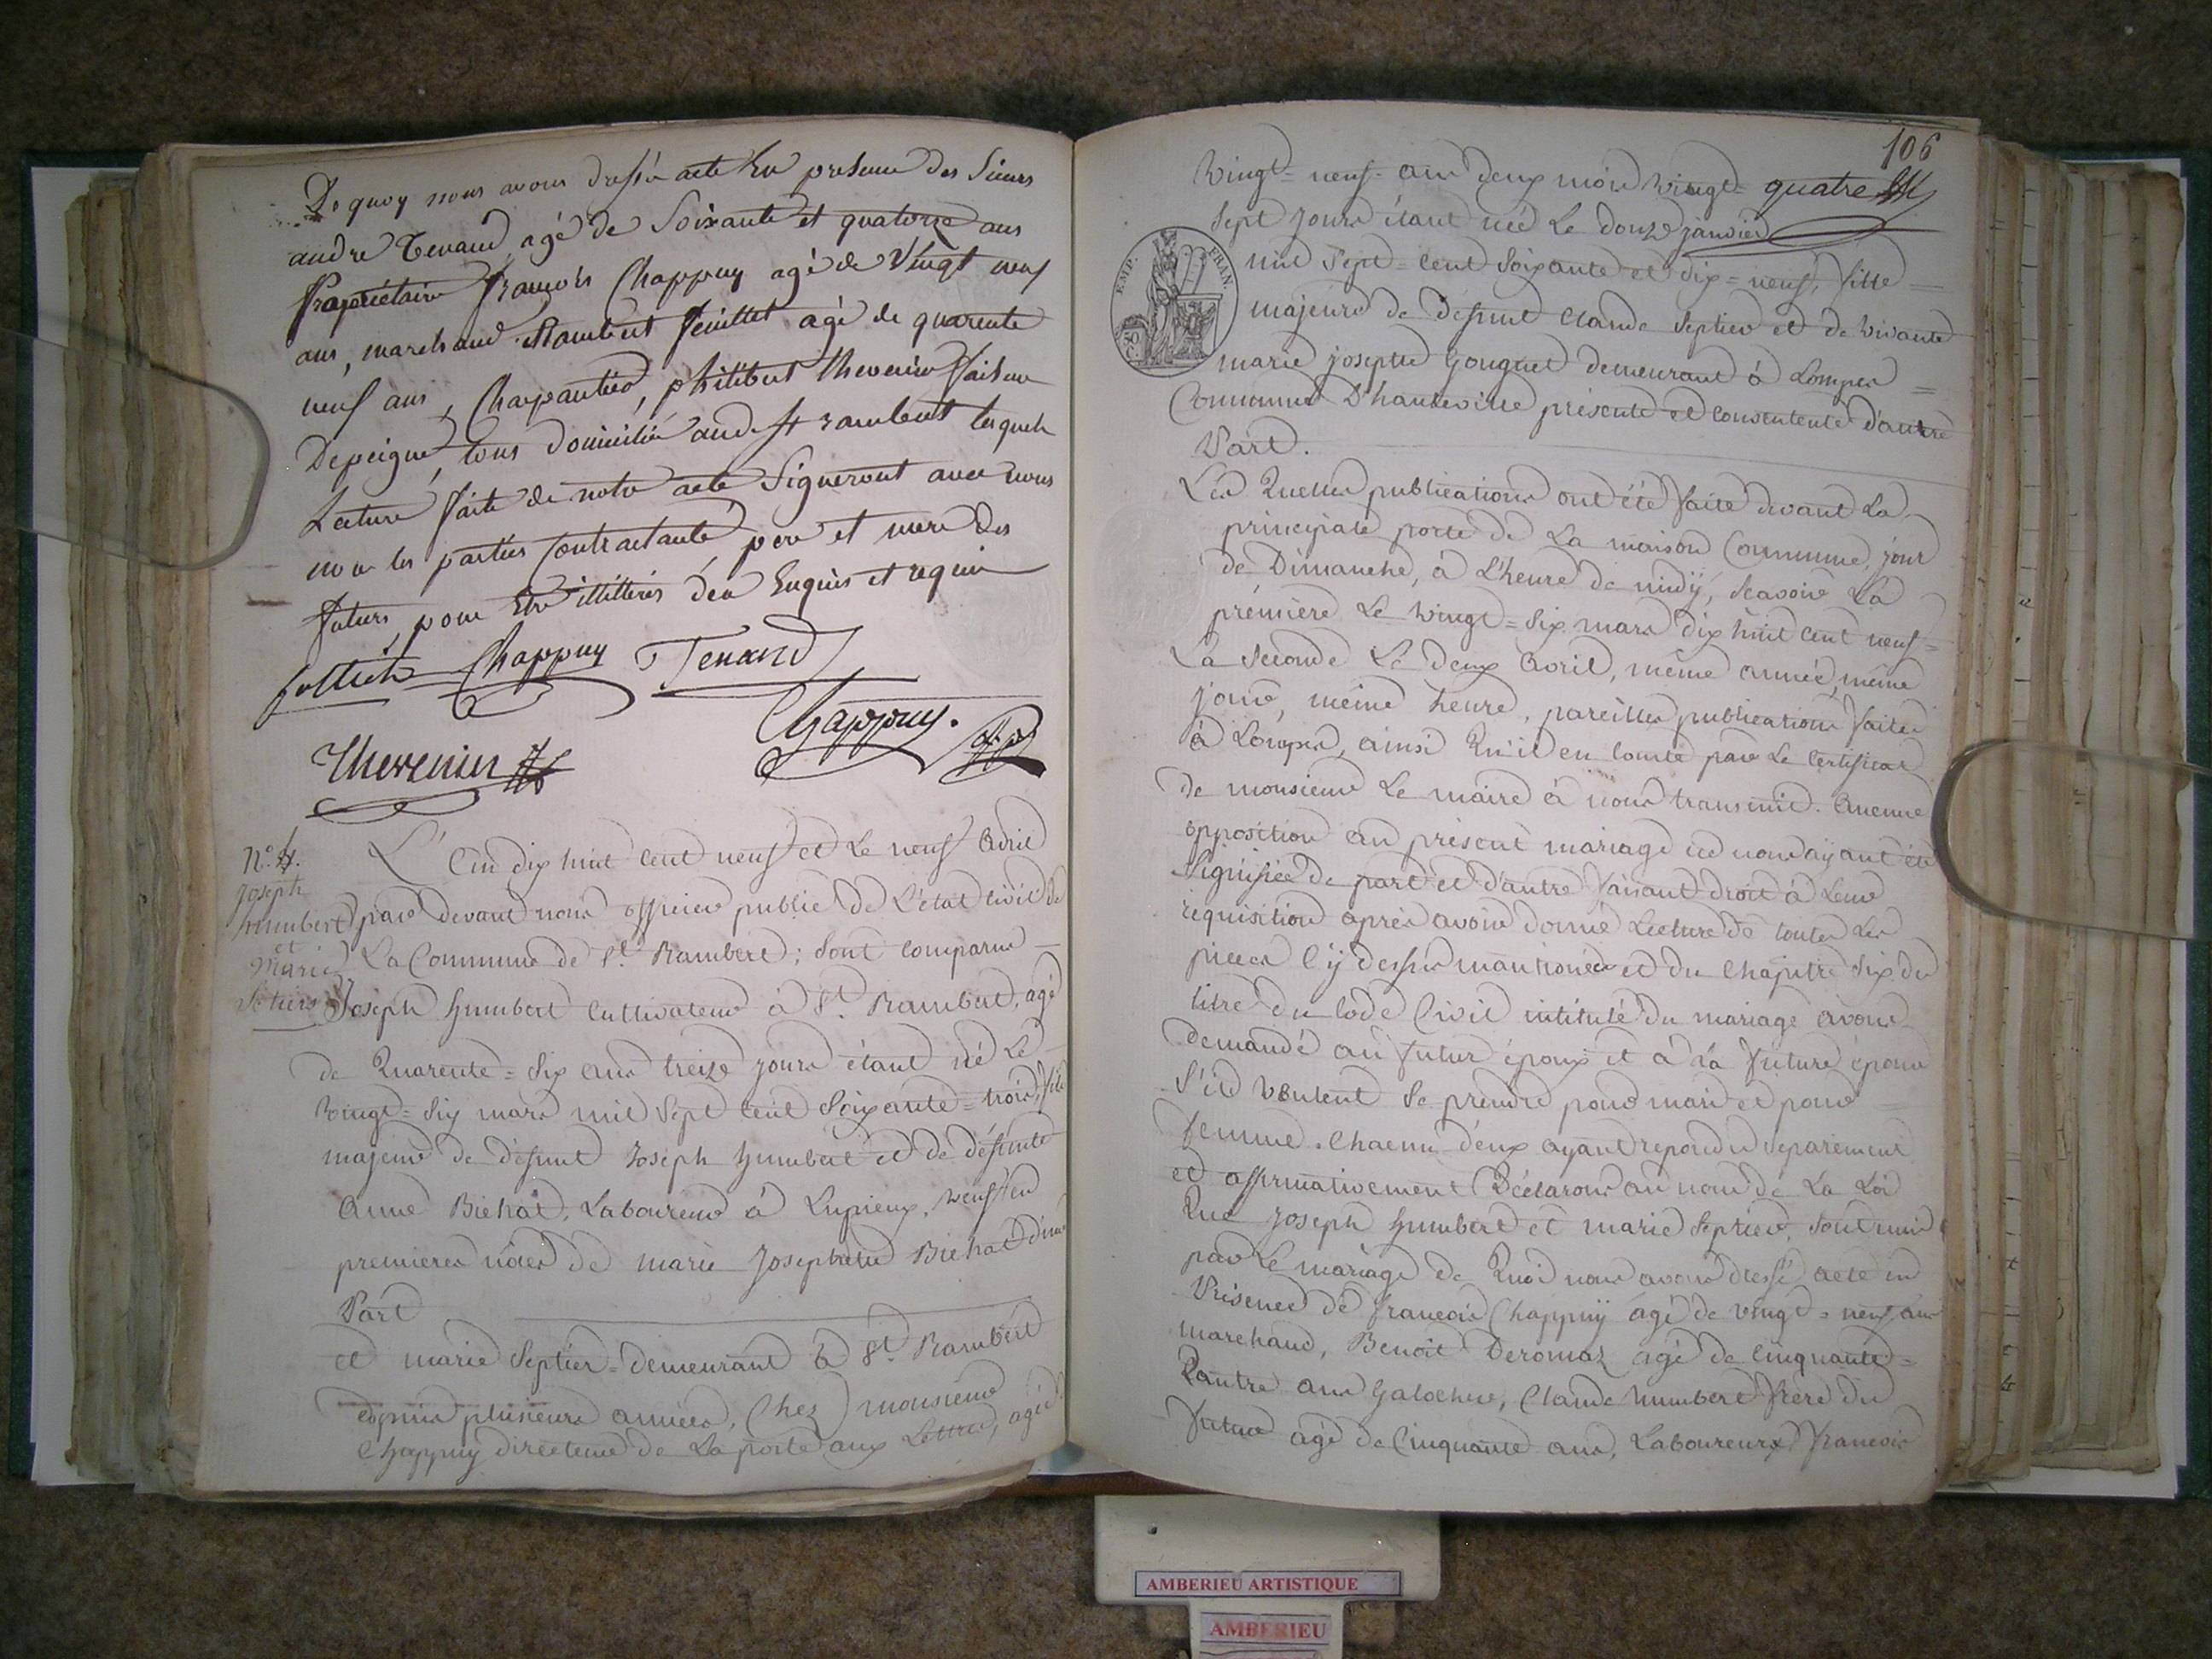 De quoy nous avons dressé acte En presence des Sieurs
andre Tenand agé de Soixante et quatorze ans
Propriétaire françois Chappuy agé de Vingt neuf
ans, marchand Rambert feuillet agé de quarente
neuf ans, Charpantier, philibert thevenin faiseur
De peigne, tous domicilié aud. st rambert lesquels
Lecture faite de notre acte Signeront avec nous
non les parties Contractante père et mere des
futurs, pour Etre illitérés d'en Enquis et requis
Chappuy Tenand
Chappuy.
Thevenin
N.º 4.
Joseph
humbert
et
Marie
L'an dix huit cent neuf et le neuf avril
par devant nous officier public de L'état civil de
La Commune de St. Rambert; Sont comparus
Joseph humbert Cultivateur à St. Rambert, agé
de Quarente = Six ans treize jours étant né Le
Vingt = Six mars mil Sept cent Soixante = trois, fils
majeur de défunt Joseph humbert et de défunte
Anne Bichat, Laboureur à Lupieux, veuf en
premieres nôces de marie Josephette Bichat d'une
Part
et marie Septier = demeurant à St. Rambert
depuis plusieurs années, Chez monsieur
Chappuy directeur de La poste aux Lettres, agée
106
Vingt = neuf = ans deux mois vingt = quatre
Sept jours étant née Le douze janvier
EMP. FRAN.
50 C.
mil Sept = cent Soixante et dix = neuf, fille
majeure de défunt Claude Septier et de vivante
marie josephe Gouguet demeurant à Lompes
Commune D'hauteville présente et consentente d'autre
Part.
Les Quelles publications ont été faite devant La
principale porte de La maison Commune, jour
de Dimanche, à L'heure de midÿ, Scavoir La
première Le vingt = Six mars dix huit cent neuf =
La Seconde Le deux avril, même année, même
jour, même heure, pareilles publications faites
à Lompes, ainsi Qu'il en Conste par Le Certificat
de monsieur Le maire à nous transmit. Aucune
opposition au présent mariage ne nous aÿant été
Signifiée de part et d'autre faisant droit à Leur
requisition après avoir donné Lecture de toutes Les
pieces Cÿ dessus mantionées et du Chapitre Six du
titre du Code Civil intitulé du mariage avons
demandé au futur époux et à La future épouse
S'ils veulent Se prendre pour mari et pour
femme. Chacun d'eux ayant repondu separement
et affirmativement Déclarons au nom de La Loi
Que Joseph humbert et marie Septier, Sont unis
par Le mariage de Quoi nous avons dressé acte en
Présence de françois Chappuÿ agé de vingt = neuf ans
marchand, Benoit Deromas agé de Cinquante =
Quatre ans Galochier, Claude humbert frère du
futur agé de Cinquante ans, Laboureurs françois